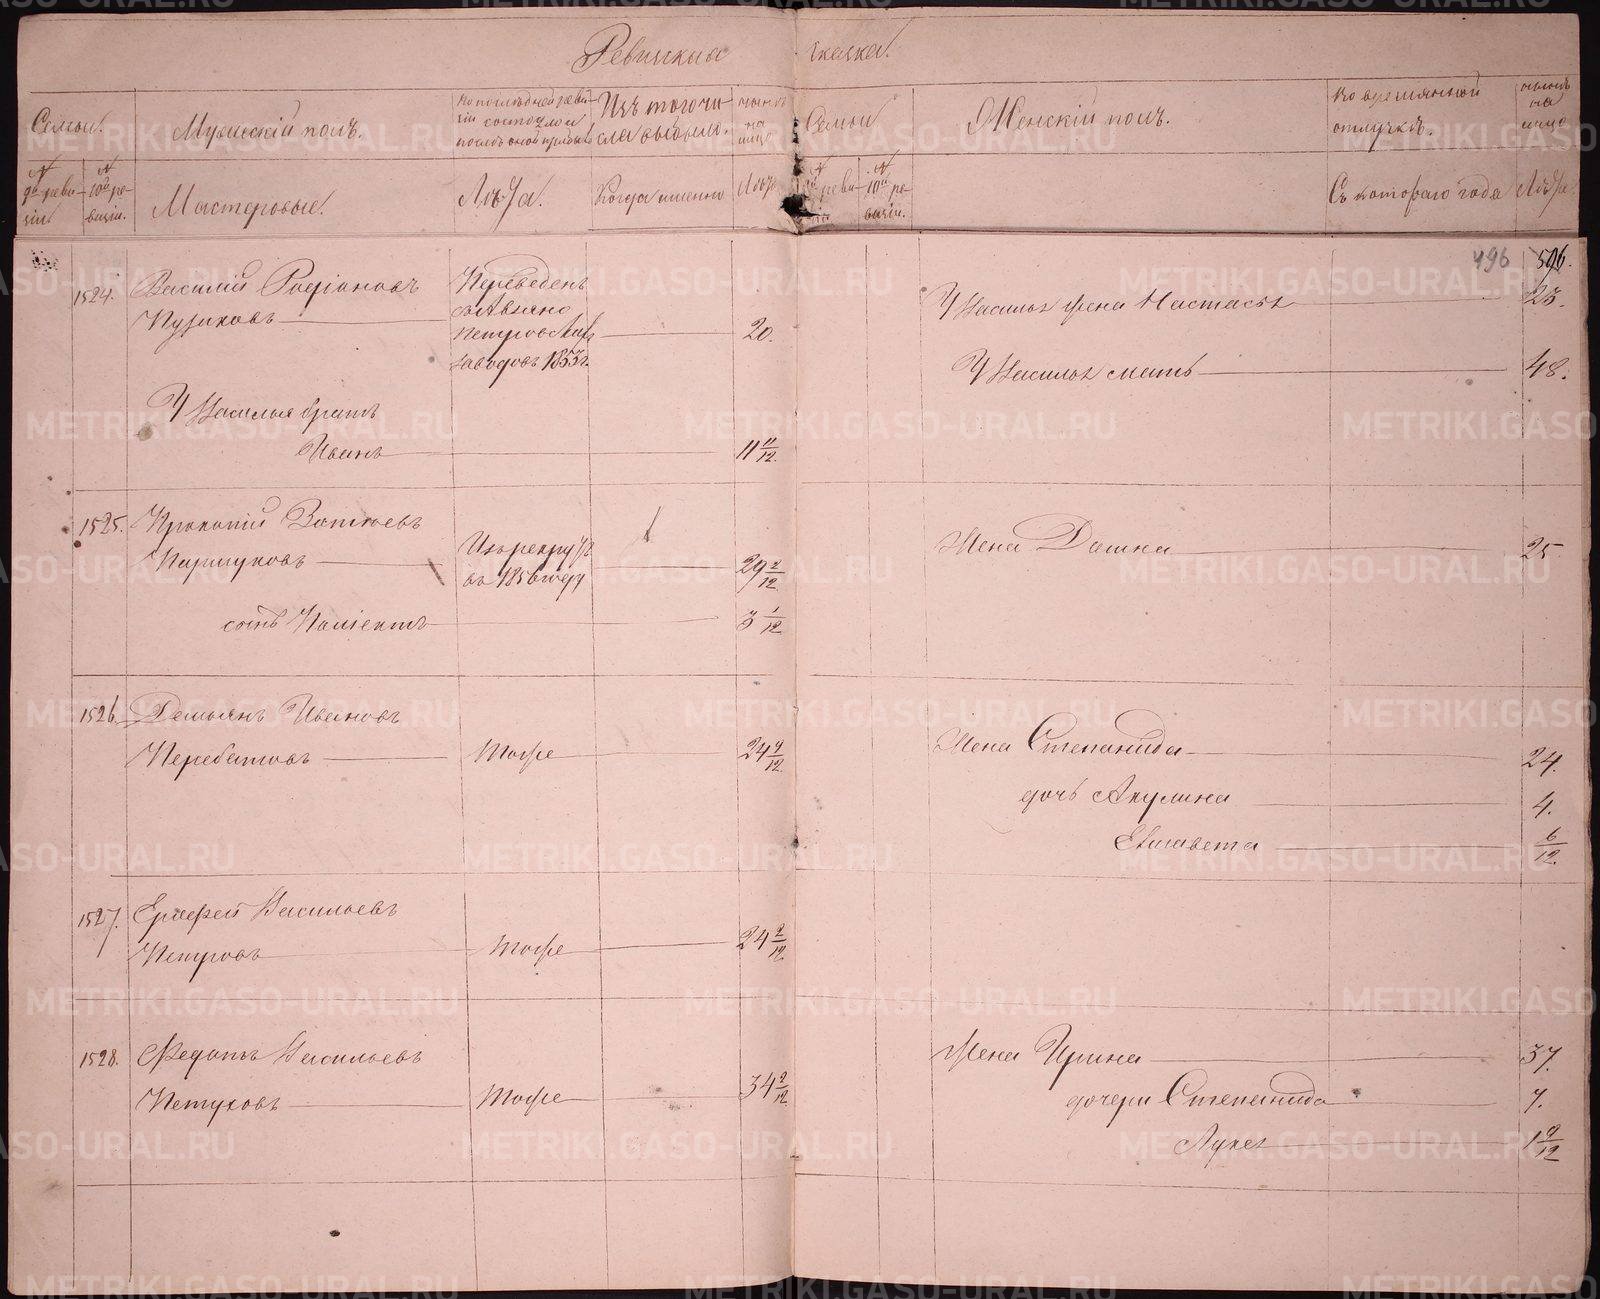 Ревизская сказка.
Семьи.
Мужескій полъ.
По последней реви-
зіи состояло и
после оной прибыло
Изъ того чи-
сла выбыло.
нынѣ
на
лицо
Семьи
Женскій полъ.
Во временной
отлучкѣ.
нынѣ
на
лицо
№
9й реви-
зіи.
№
10й ре-
визіи.
Мастеровые.
Лѣта.
Когда именно
Лѣта
№
реви-
зіи
№
10й ре-
визіи.
Съ котораго года
Лѣта.
496 596.
1524. Василій Родіоновъ
Пузиковъ
Переведенъ
заводовъ 1853 г.
20.
У Василья жена Настасья 23.
У Василья мать 48.
У Василья братъ
Иванъ 11 11/12.
1525. Прокопій Зотѣевъ
Паршуковъ
Изъ рекрутъ
въ 1856 году
29 2/12
Жена Домна 25
сынъ 3 1/12
1526. Демьянъ Ивановъ
тоже 24 9/12.
Жена Степанида 24.
дочь Акулина 4.
Елисавета 6/12.
1527. Ерафей Васильевъ
Петровъ тоже 24 2/12.
1528. Федотъ Васильевъ
Петуховъ тоже 34 2/12
Жена Ирина 37.
дочери Степанида 7.
1 9/12
METRIKI.GASO-URAL.RU